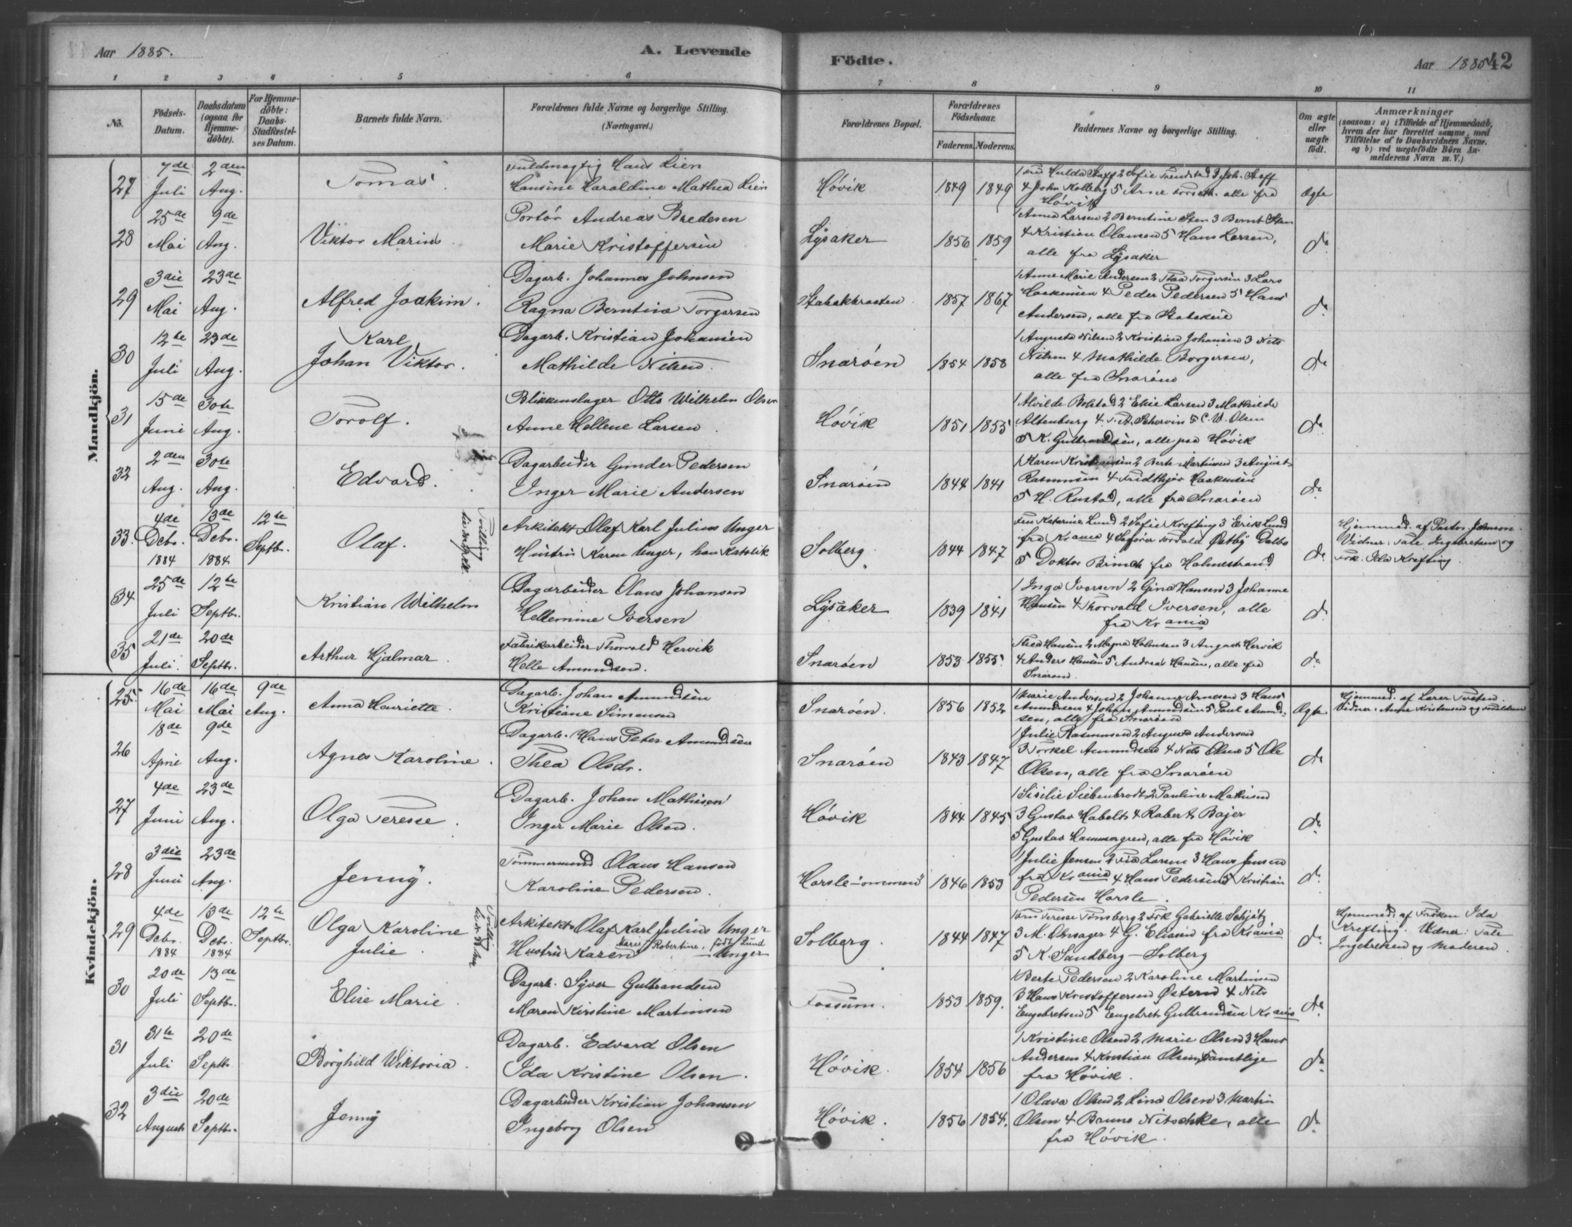 Aar 1885. A. Levende Fødte. Aar 1885 42
1 2 3 4 5 6 7 8 9 10 11
No. Fødsels-Datum. Daabsdatum (ogsaa for Hjemmedøbte). For Hjemmedøbte: Daabs-Stadfæstelses Datum. Barnets fulde Navn. Forældrenes fulde Navne og borgerlige Stilling. (Næringsvei.) Forældrenes Bopæl. Forældrenes Fødselsaar. Faderens. Moderens. Faddernes Navne og borgerlige Stilling. Om ægte eller uægte født. Anmærkninger (saasom: a) i Tilfælde af Hjemmedaab, hvem der har forrettet samme, med Tilføielse af to Daabsvidners Navne. og b) ved uægtefødte Børn Anmelderens Navn m. V.)
Mandkjøn.
27 7de Juli 2den Aug. Tomas Fuldmægtig Hans Lien
Hansine Haraldine Mathea Lien Høvik 1849 1849 alle fra Høvik Ægte
28 25de Mai 9de Aug. Viktor Marius Portør Andreas Bredesen
Marie Kristoffersen Lysaker 1856 1859 1 Anna Larsen 2 Berntine Sten 3 Bernt Sten
4 Kristian Olausen 5 Hans Larsen,
alle fra Lysaker do
29 3die Mai 23de Aug. Alfred Joakim. Dagarb. Johannes Johnsen
Ragna Berntine Torgersen 1857 1867 1 Anne Marie Andersen 2 Thea Torgersen 3 Lars
Haakensen 4 Peder Pedersen 5 Hans
Andersen, alle fra do
30 12te Juli 23de Aug. Karl
Johan Viktor. Dagarb. Kristian Johansen
Mathilde Nilsen. Snarøen 1854 1858 1 Augusta Nilsen 2 Kristian Johansen 3 Nils
Nilsen 4 Mathilde Borgersen,
alle fra Snarøen do
31 15de Juni 30te Aug. Torolf. Blikkenslager Otto Wilhelm Olsen
Anne Hellene Larsen. Høvik 1851 1855 2 Elise Larsen 3 Mathilde
Altenburg 5 C. W. Olsen
alle paa Høvik do
32 2den Aug. 30te Aug. Edvard. Dagarbeider Gunder Pedersen
Inger Marie Andersen Snarøen 1844 1841 1 Karen Kristiansen 2 Berte Martinsen 3 August
Rasmussen 4 Fridthjof Haakensen
5 H. Rustad, alle fra Snarøen do
33. 4de Debr. 1884 13de Debr. 1884 12te Septbr. Olaf. Tvilling Arkitekt Olaf Karl Julius Unger
Hustru Karen Unger, han Katolik Solberg. 1844 1847 1 Fru Katarina Lund 2 Sofie Krefting 3 Erik Lund
fra Krania
5 Doktor fra Holmestrand do Hjemmed. af Pastor
Frk. Ida Krefting.
34 25de Juli 12te Septbr. Kristian Wilhelm Dagarbeider Olaus Johansen
Hellemine Iversen Lysaker 1839 1841 1 Inga Iversen 2 Gina Hansen 3 Johanne
Hansen 4 Thorvald Iversen, alle
fra Krania do
35 21de Juli 20de Septbr. Arthur Hjalmar. Fabrikarbeider Thorvald Hervik
Helle Amundsen. Snarøen 1853 1855 1 Thea Hansen 2 Magna Holmsen 3 August Hervik
4 Anders Hansen 5 Andreas Hansen, alle fra
Snarøen. do
Kvindekjøn.
25 16de Mai 16de Mai 9de Aug. Anna Henriette. Dagarb. Johan Amundsen
Kristiane Simensen Snarøen. 1856 1852 1 Marie Andersen 2 Johanne Arnesen 3 Hans
Amundsen 4 Johan Amundsen 5 Paul Amundsen, alle fra Snarøen Ægte Hjemmed. af Lærer
26 18de April 9de Aug. Agnes Karoline. Dagarb. Hans Peter Amundsen
Thea Olsdr. Snarøen 1843 1847 1 Julie Rasmussen 2 Augusta Andersen
3 Torkel Amundsen 4 Nils Olsen 5 Ole
Olsen, alle fra Snarøen do
27 4de Juni 23de Aug. Olga Terese. Dagarb. Johan Mathisen
Inger Marie Olsen. Høvik 1844 1845 1 Sisilie Siebenbrodt 2 Pauline Mathisen
3 Gustav 4 Robert Bajer
5 Gustav Hammergren, alle fra Høvik do
28 3die Juni 23de Aug. Jenny. Tømmermand Olaus Hansen
Karoline Pedersen. 1846 1853 1 Julie Jensen 2 Larsen 3 Hans Jensen
fra Krania 4 Hans Pedersen 5 Kristian
Pedersen Horsle. do
29 4de Debr. 1884 13de Debr. 1884 12te Septbr. Olga Karoline
Julie. Arkitekt Olaf Karl Julius Unger
Hustru Karen Marie Robertine, født Lund Unger Solberg. 1844 1847 1 Fru Terese Tønsberg 2 Frk. Gabrielle Schjøtz
3 M. Ovsager 4 G. Eliasen fra Krania
5 K. Sandberg — Solberg do Hjemmed. af Frøken Ida
Krefting.
Ingebretsen og Moderen.
30 20de Juli 13de Septbr. Elise Marie. Dagarb. Syver Gulbrandsen
Maren Kirstine Martinsen Fossum. 1853 1859. 1 Berte Pedersen 2 Karoline Martinsen
3 Hans Kristoffersen Østern 4 Nils
Engebretsen 5 Engebret Gulbrandsen Krania do
31 31te Juli 20de Septb. Borghild Wiktoria. Dagarb. Edvard Olsen
Ida Kristine Olsen. Høvik. 1854 1856 1 Kristine Olsen 2 Marie Olsen 3 Hans
Andersen 4 Kristian Olsen, samtlige
fra Høvik. do
32 3die August 20de Septbr. Jenny Dagarbeider Kristian Johansen
Ingeborg Olsen Høvik. 1856 1854. 1 Olava Olsen 2 Lina Olsen 3 Martin
Olsen 4 Bruno Nitschke, alle
fra Høvik. do